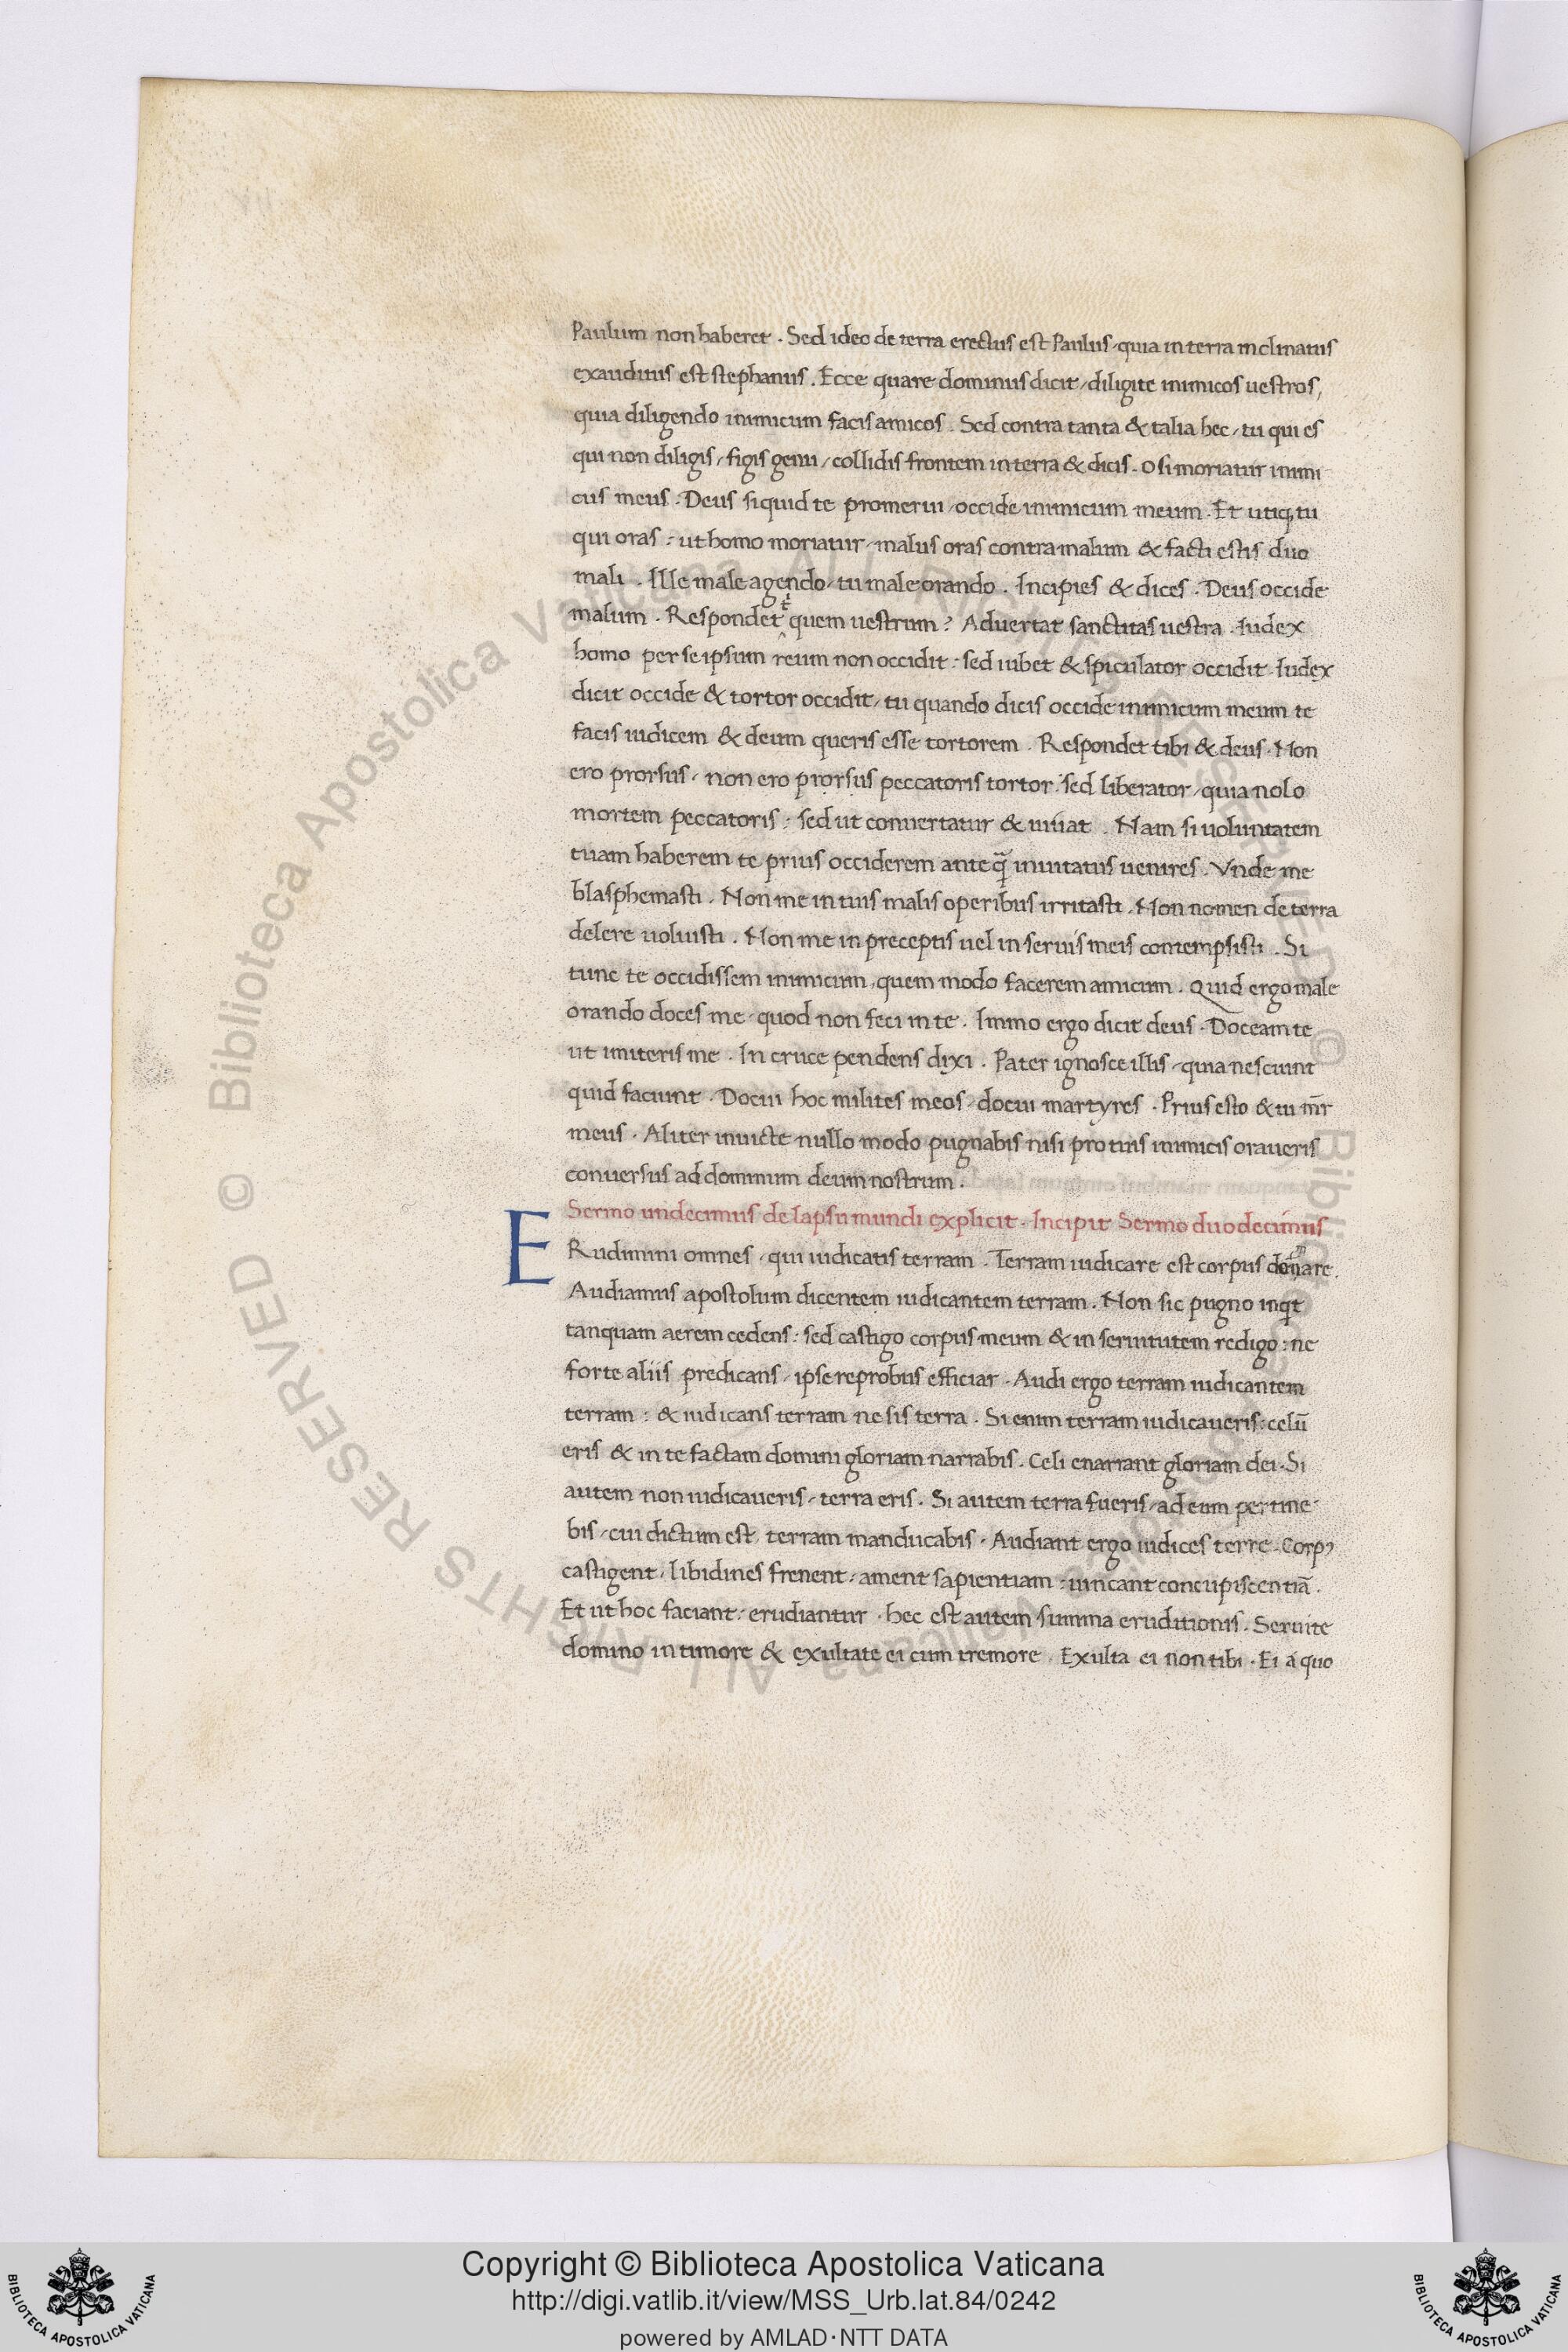 Paulum non haberet. Sed ideo de terra erectus est Paulus, quia in terra inclinatus
exauditus est stephanus. Ecce quare dominus dicit, diligite inimicos uestros,
quia diligendo inimicum facis amicos. Sed contra tanta & talia hec, tu qui es
qui non diligis, figis genu, collidis frontem in terra & dicis. O si moriatur inimi
cus meus. Deus si quid te promerui, occide inimicum meum. Et utiq; tu
qui oras: ut homo moriatur, malus oras contra malum & facti estis duo
mali. Ille male agendo, tu male orando. Incipies & dices. Deus occide
malum. Respondet t̉ quem uestrum? Aduertat sanctitas uestra. Iudex
homo per se ipsum reum non occidit: sed iubet & spiculator occidit. Iudex
dicit occide & tortor occidit, tu quando dicis occide inimicum meum te
facis iudicem & deum queris esse tortorem. Respondet tibi & deus. Non
ero prorsus, non ero prorsus peccatoris tortor: sed liberator, quia nolo
mortem peccatoris: sed ut conuertatur & uiuat. Nam si uoluntatem
tuam haberem te prius occiderem anteq̄ inuitatus uenires. Vnde me
blasphemasti. Non me in tuis malis operibus irritasti. Non nomen de terra
delere uoluisti. Non me in preceptis uel in seruis meis contempsisti. Si
tunc te occidissem inimicum, quem modo facerem amicum. Quid ergo male
orando doces me, quod non feci in te. Immo ergo dicit deus. Doceam te
ut imiteris me. In cruce pendens dixi. Pater ignosce illis, quia nesciunt
quid faciunt. Docui hoc milites meos, docui martyres. Prius esto & tu mr̄
meus. Aliter inuicte nullo modo pugnabis nisi pro tuis inimicis oraueris
conuersus ad dominum deum nostrum.
Sermo undecimus de lapsu mundi explicit. Incipit Sermo duodecimus
E Rudimini omnes, qui iudicatis terram. Terram iudicare est corpus
Audiamus apostolum dicentem iudicantem terram. Non sic pugno inq̇t
tanquam aerem cedens: sed castigo corpus meum & in seruitutem redigo: ne
forte aliis predicans, ipse reprobus efficiar. Audi ergo terram iudicantem
terram: & iudicans terram ne sis terra. Si enim terram iudicaueris: celū
eris & in te factam domini gloriam narrabis. Celi enarrant gloriam dei. Si
autem non iudicaueris, terra eris. Si autem terra fueris, ad eum pertine
bis, cui dictum est, terram manducabis. Audiant ergo iudices terre. Corpꝰ
castigent, libidines frenent, ament sapientiam: uincant concupiscentiā.
Et ut hoc faciant: erudiantur. hec est autem summa eruditionis. Seruite
domino in timore & exultate ei cum tremore. Exulta ei non tibi. Ei a quo
© Biblioteca Apostolica Vaticana ALL RIGHTS RESERVED © Biblioteca Apostolica Vaticana ALL RIGHTS RESERVED
Copyright © Biblioteca Apostolica Vaticana
http://digi.vatlib.it/view/MSS_Urb.lat.84/0242
powered by AMLAD·NTT DATA
BIBLIOTECA APOSTOLICA VATICANA
BIBLIOTECA APOSTOLICA VATICANA